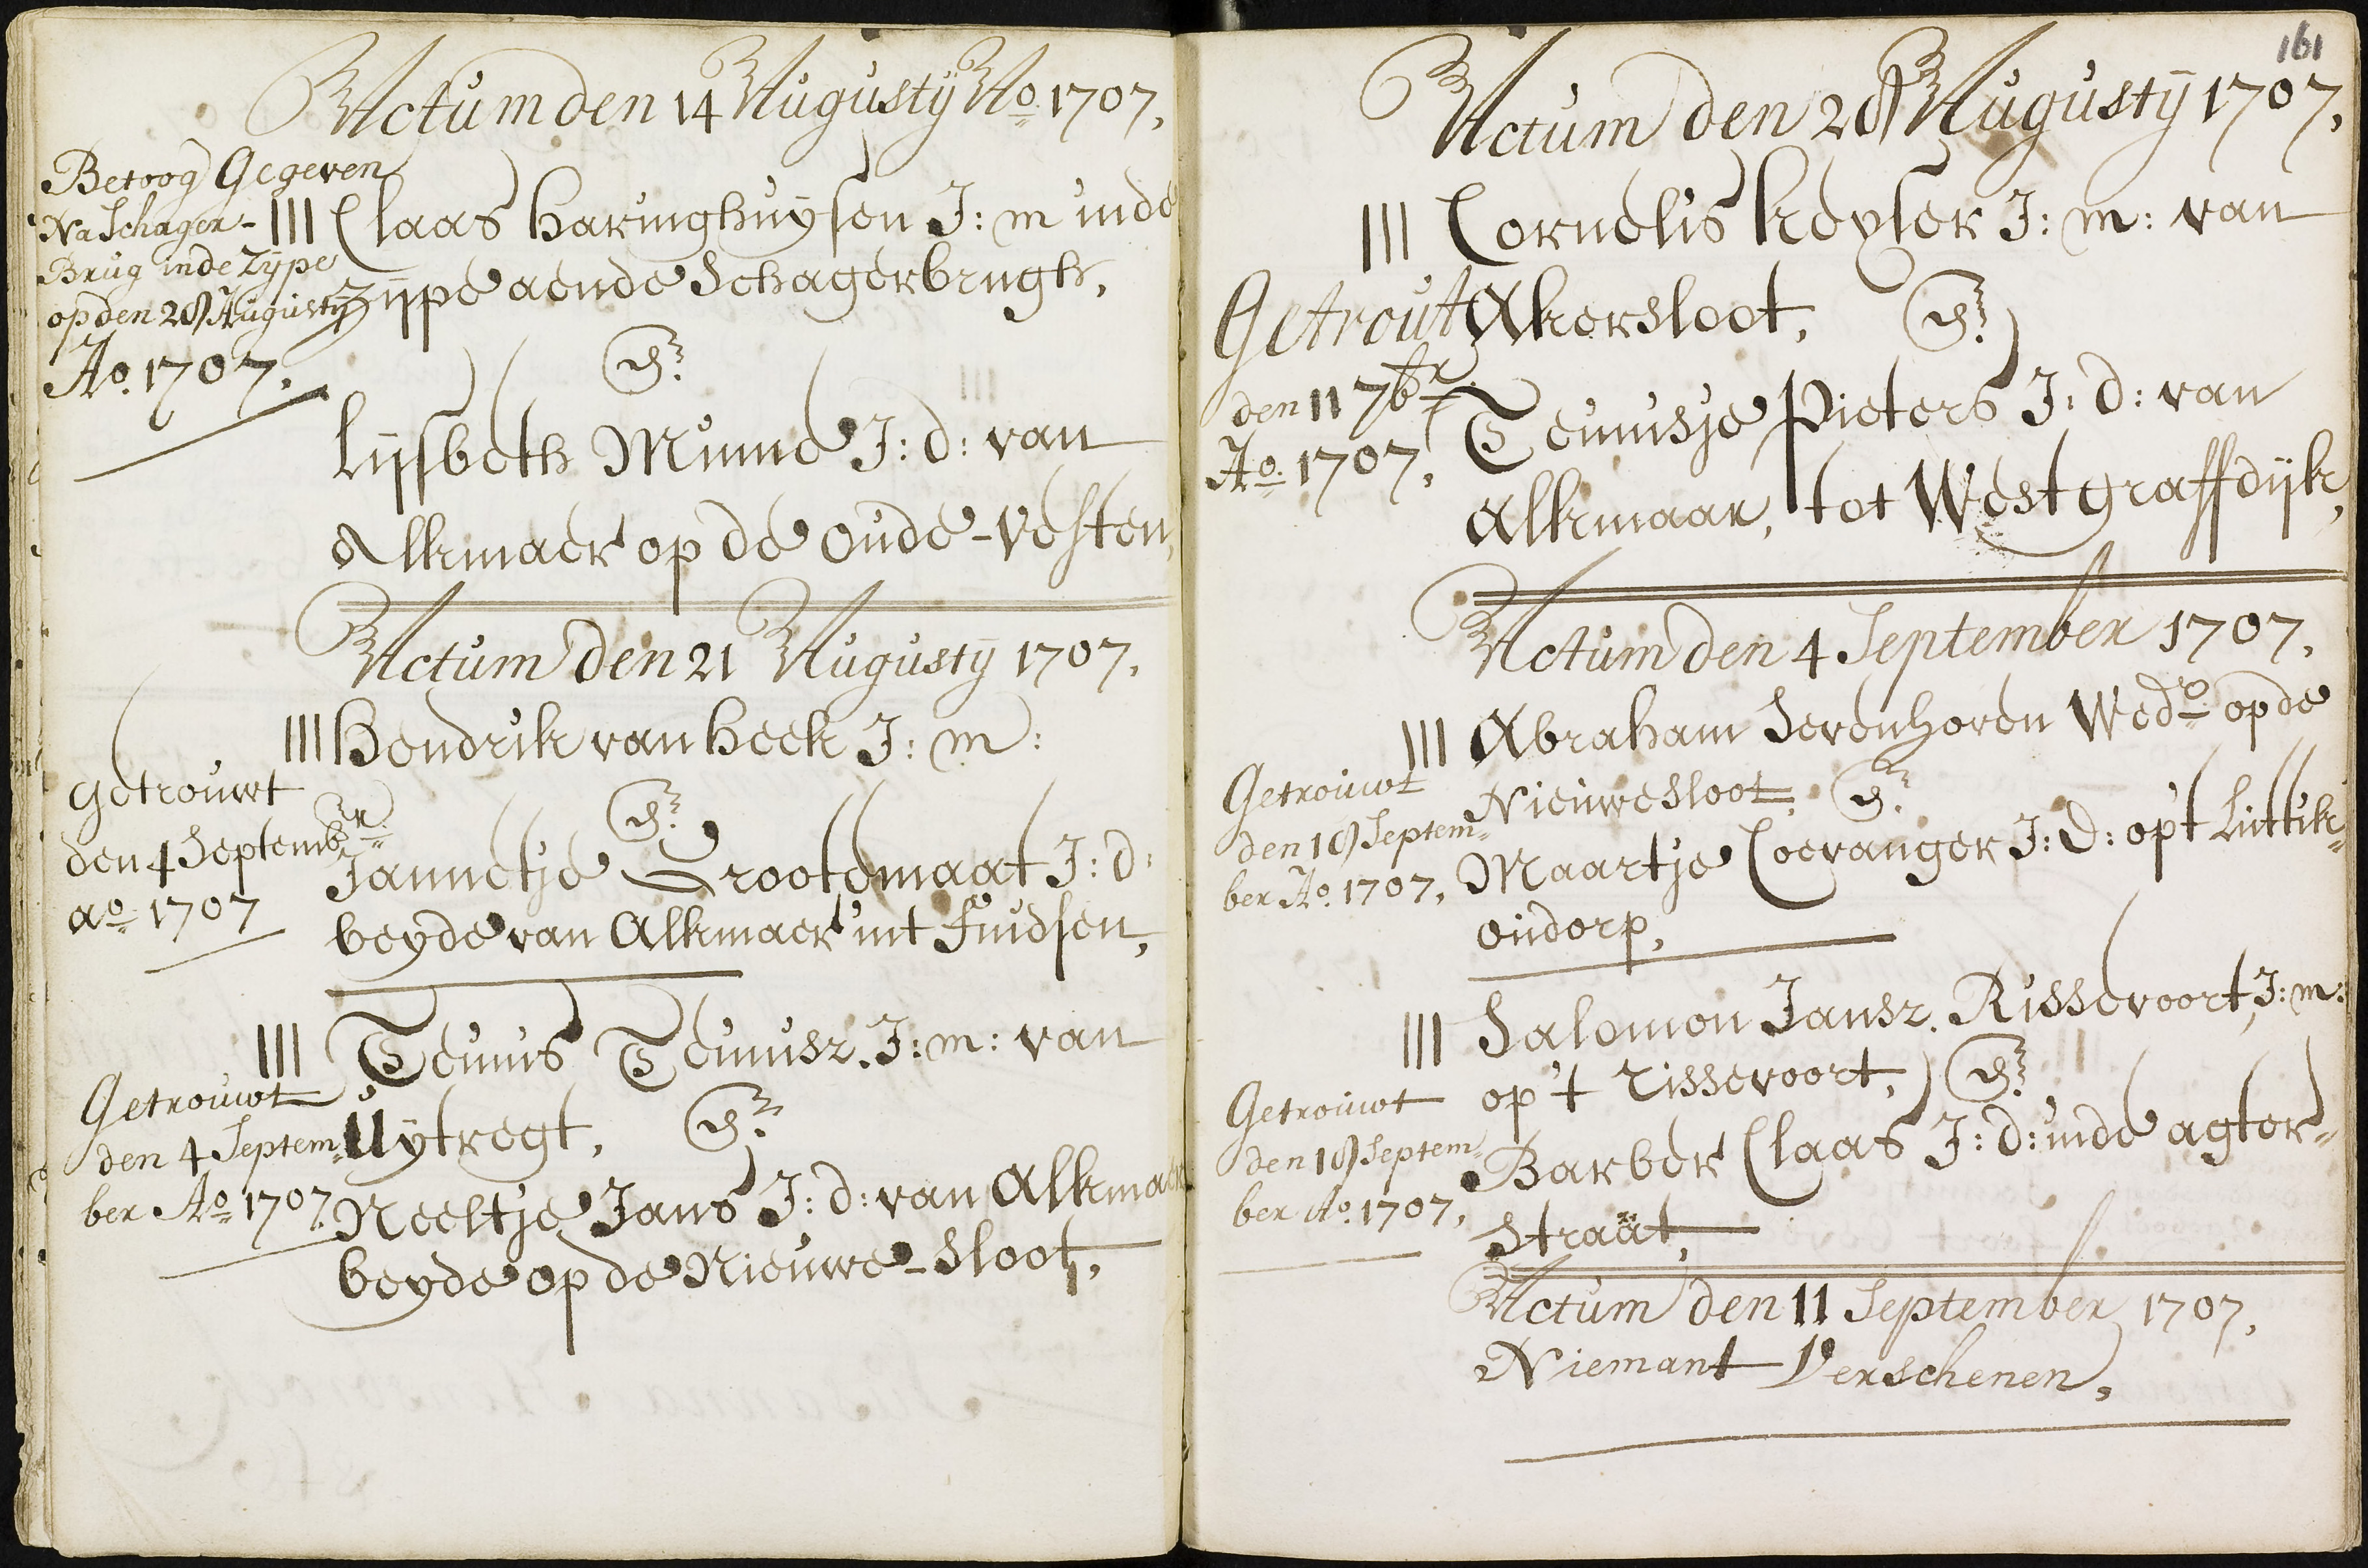 Actum den 14 Augustÿ Ao. 1707,
Betoog Gegeven
Na Schager-
Brug inde Zÿpe
op den 28 Augustÿ
Ao. 1707.
III Claas Haringhuÿsen J: m inde
Zÿpe aende Schagerbrugh,
&
Lÿsbeth Munne J: d: van
Alkmaer op de oude-vesten,
Actum den 21 Augustÿ 1707.
III Hendrik van Heek J: m:
getrouwt
den 4 Septembr
ao. 1707
&
Jannetje Grootemaat J: d:
beyde van Alkmaer int Fnidsen,
III Teunis Teunisz. J: m: van
Getrouwt
den 4 Septem
ber Ao. 1707.
Uÿtregt, &
Neeltje Jans J: d: van Alkmaer
beyde op de Nieuwe-Sloot,
161
Actum den 28 Augustÿ 1707,
III Cornelis Keyser J: m: van
Getrout
den 11 7br
Ao. 1707,
Akersloot, &
Teunisje Pieters J: d: van
Alkmaar, tot West graffdÿk,
Actum den 4 September 1707,
III Abraham Sevenhoven Wedo. op de
Getrouwt
den 18 Septem
ber Ao. 1707,
Nieuwesloot, &
Maartje Coevanger J: D: op't Luttik
oudorp,
III Salomon Jansz. Rissevoort, J: m:
Getrouwt
den 18 Septem
ber Ao. 1707,
op't rissevoort, &
Barber Claas J: d: inde agter
Straat,
Actum den 11 September 1707,
Niemant Verschenen,